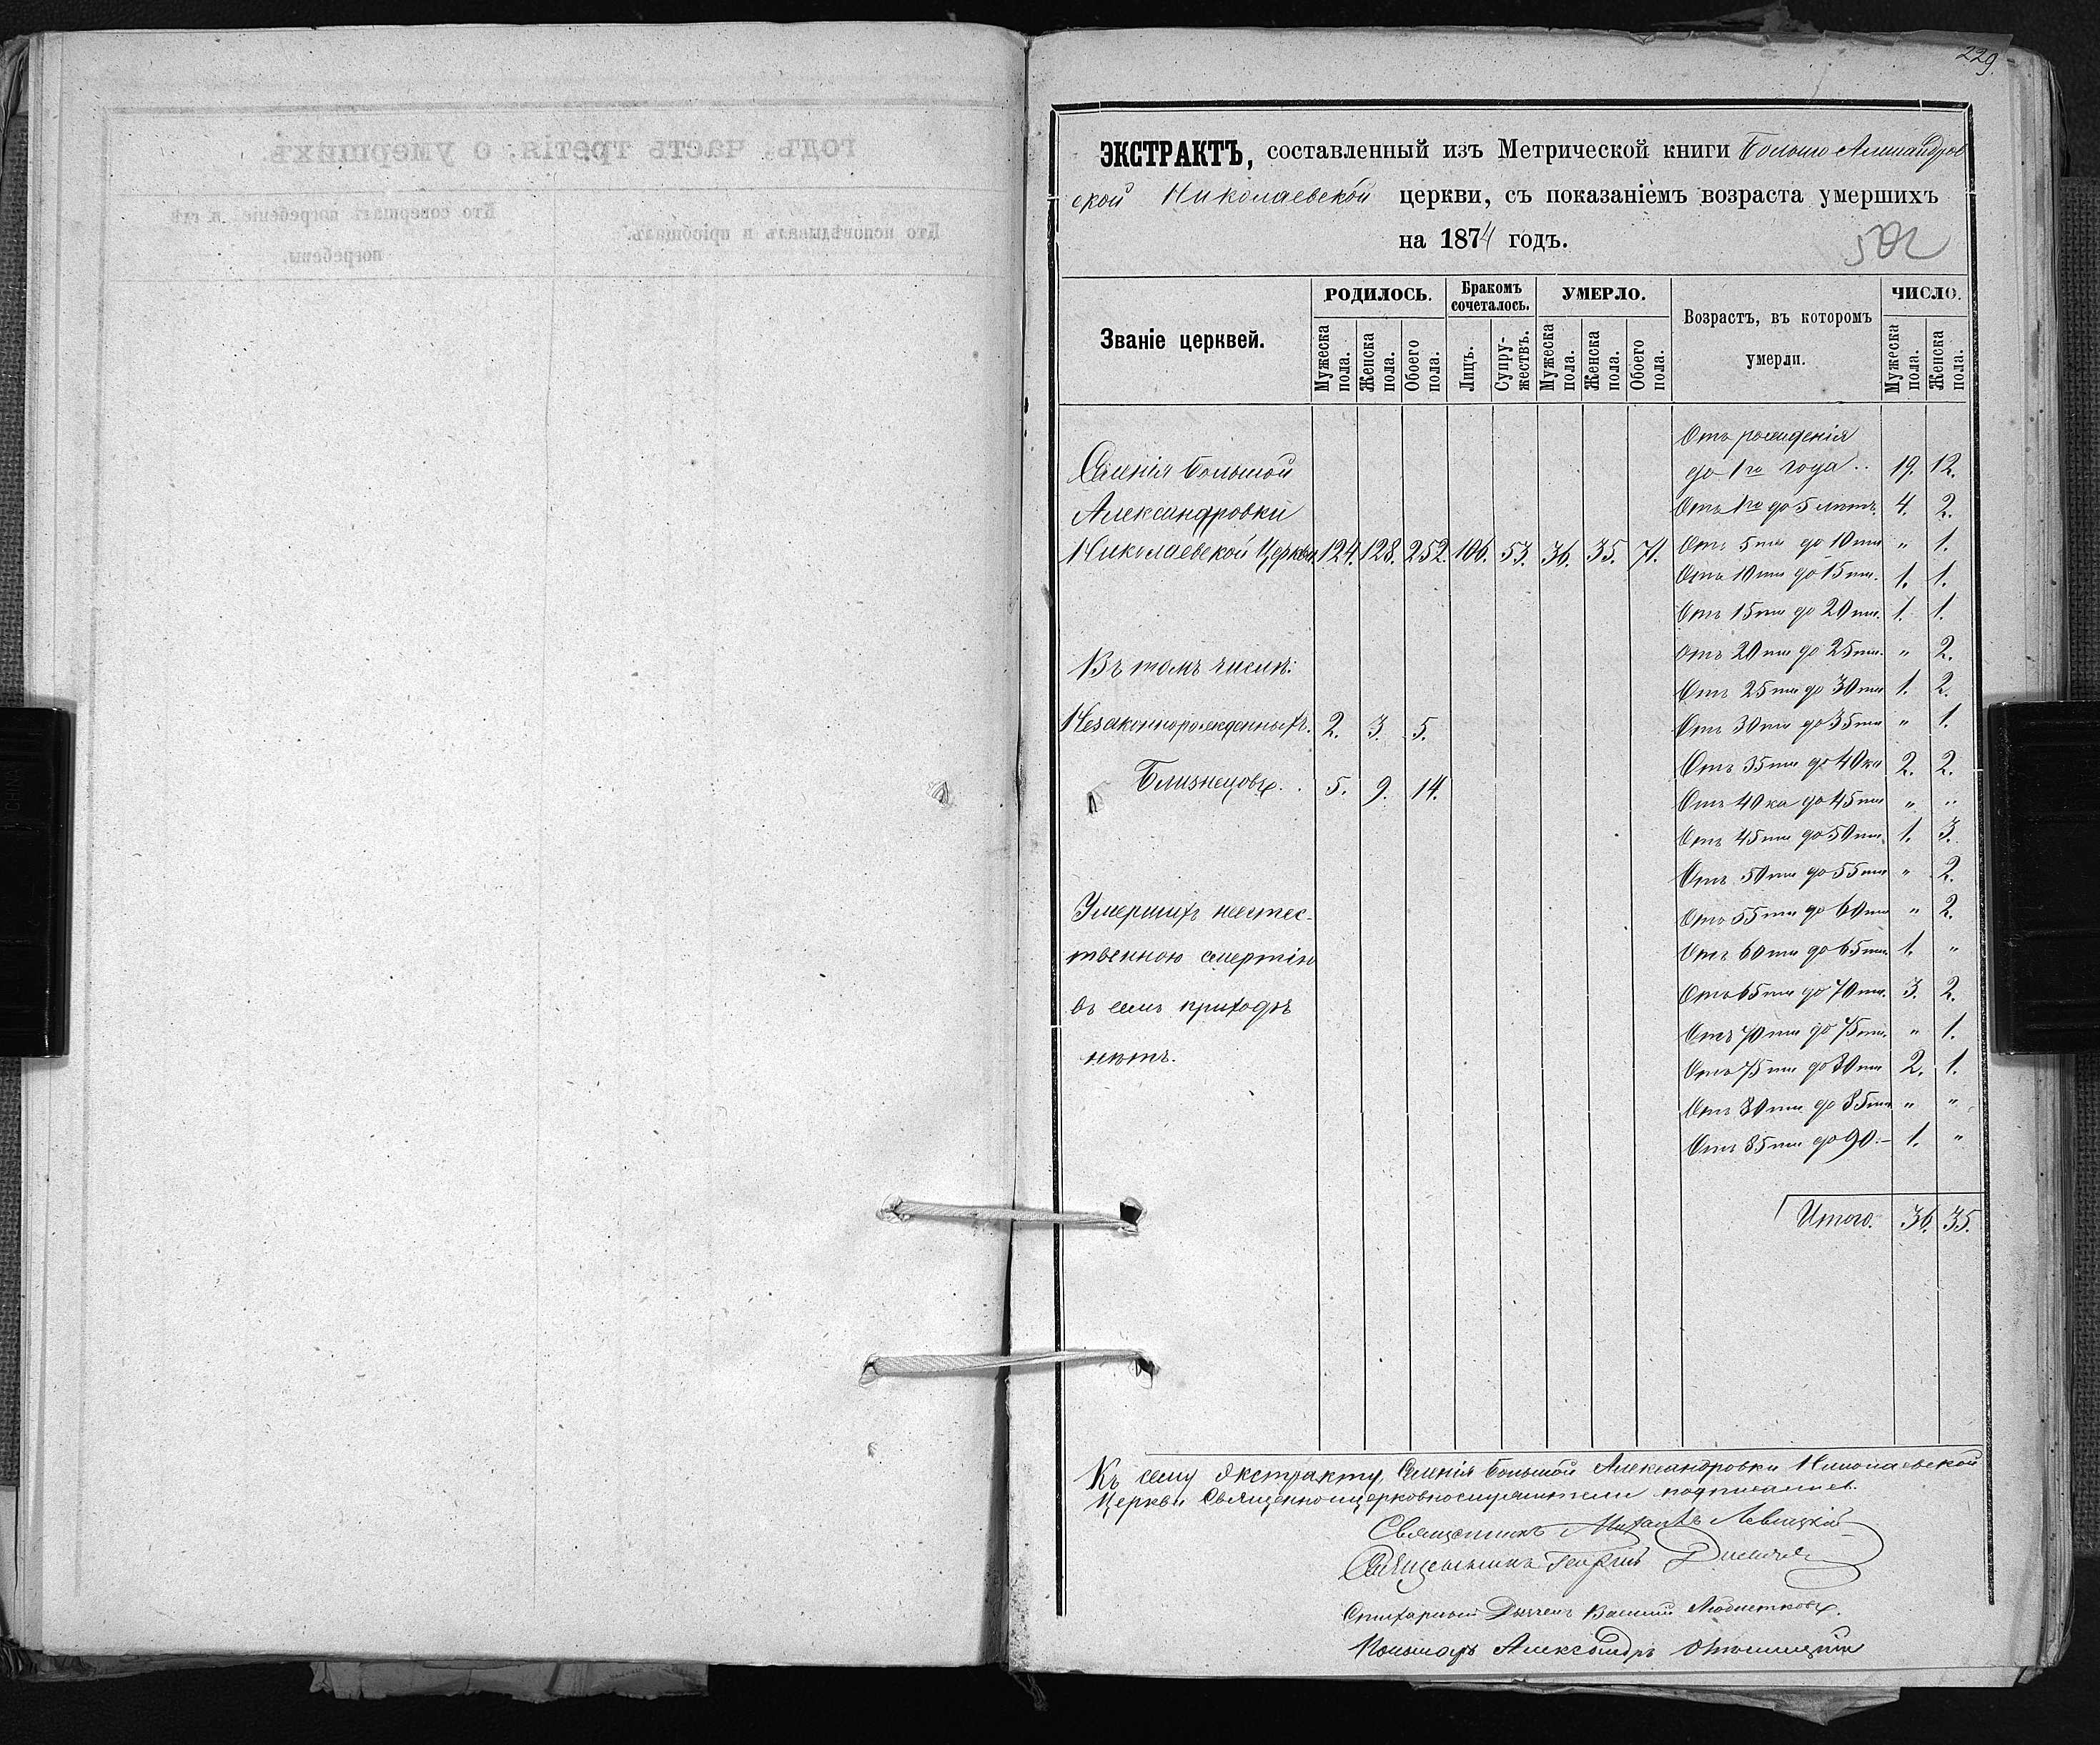 годъ, часть третія, о умершихъ.
Кто исповѣдывалъ и пріобщалъ.
Кто совершалъ погребеніе и гдѣ
погребены.
229.
ЭКСТРАКТЪ, составленный изъ Метрической книги Больше Александров
ской Николаевской церкви, съ показаніемъ возраста умершихъ
на 1874 годъ.
502
Званіе церквей.
РОДИЛОСЬ.
Мужеска пола.
Женска пола.
Обоего пола.
Бракомъ сочеталось.
Лицъ.
Супружествъ.
УМЕРЛО.
Мужеска пола.
Женска пола.
Обоего пола.
Возрастъ, въ которомъ
умерли.
ЧИСЛО.
Мужеска пола.
Женска пола.
Селенія Большой
Александровки
Николаевской Церкви 124. 128. 252. 106. 53. 36. 35. 71.
Въ томъ числѣ:
Незаконнорожденныхъ. 2. 3. 5.
Близнецовъ. . 5. 9. 14.
Умершихъ неестес-
твенною смертію
въ семъ приходѣ
нѣтъ.
Отъ рожденія
до 1го года .. 19. 12.
Отъ 1го до 5 лѣтъ. 4. 2.
Отъ 5ти до 10ти " 1.
Отъ 10ти до 15ти. 1. 1.
Отъ 15ти до 20ти. 1. 1.
Отъ 20ти до 25ти. " 2.
Отъ 25ти до 30ти 1. 2.
Отъ 30ти до 35ти " 1.
Отъ 35ти до 40ка 2. 2.
Отъ 40ка до 45ти " "
Отъ 45ти до 50ти. 1. 3.
Отъ 50ти до 55ти " 2.
Отъ 55ти до 60ти " 2.
Отъ 60ти до 65ти. 1. "
Отъ 65ти до 70ти. 3. 2.
Отъ 70ти до 75ти. " 1.
Отъ 75ти до 80ти 2. 1.
Отъ 80ти до 85ти " "
Отъ 85ти до 90.– 1. "
Итого. 36. 35.
Къ сему Экстракту, Селенія Большой Александровки Николаевской
Церкви Священноцерковнослужители подписались.
Священникъ Михаилъ Левицкій
Священникъ Георгій
Стихарный Дьячекъ Василій
Пономарь Александръ